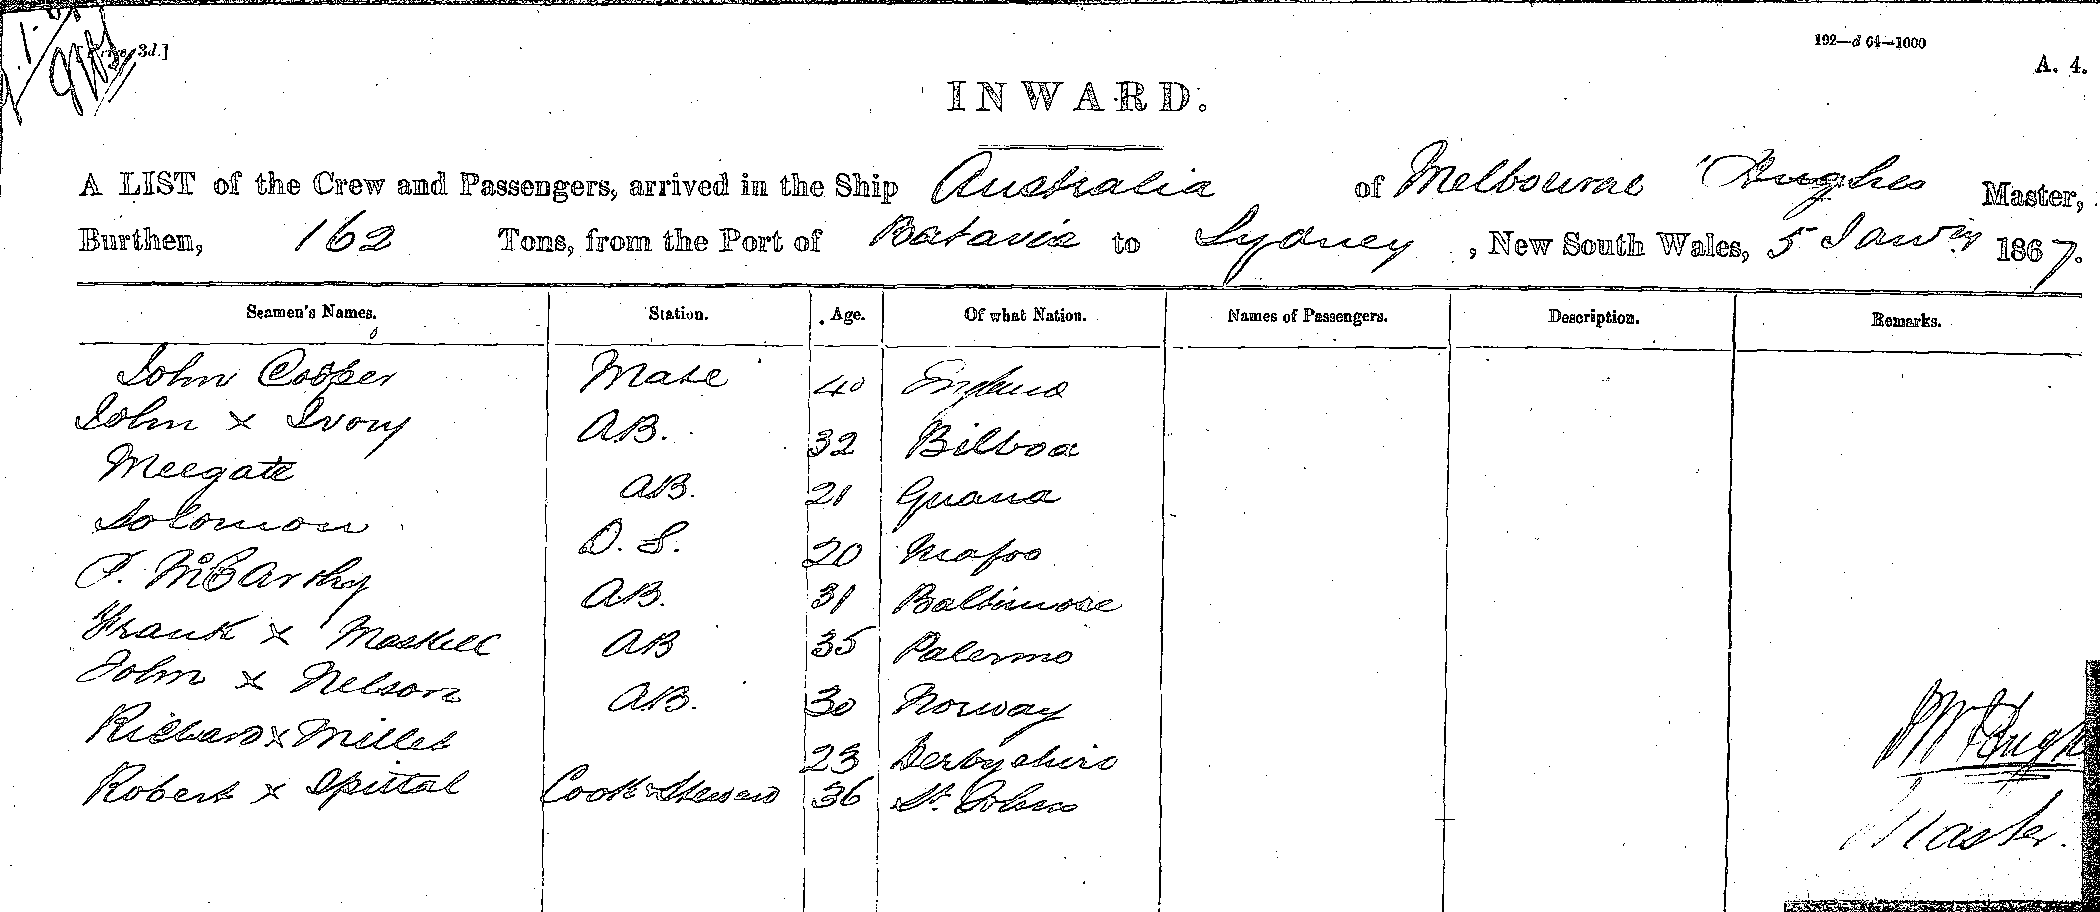 3d.]
192—d 64—1000
A. 4.
INWARD.
A LIST of the Crew and Passengers, arrived in the Ship Australia of Melbourne Hughes Master,
Burthen, 162 Tons, from the Port of Batavia to Sydney, New South Wales, 5 Janry 1867.
Seamen's Names. Station. Age. Of what Nation. Names of Passengers. Description. Remarks.
John Cooper Mate 40 England
John x Ivory A.B. 32 Bilboa
Meegate A.B. 21 Guana
Solomon O.S. 20
McCarthy A.B. 31 Baltimore
Frank x Maskell AB 35 Palermo
John x Nelson A.B. 30 Norway
Richard x Millet 23 Derbyshire
Robert x Spittal Cook & Steward 36 St. Johns
Master.